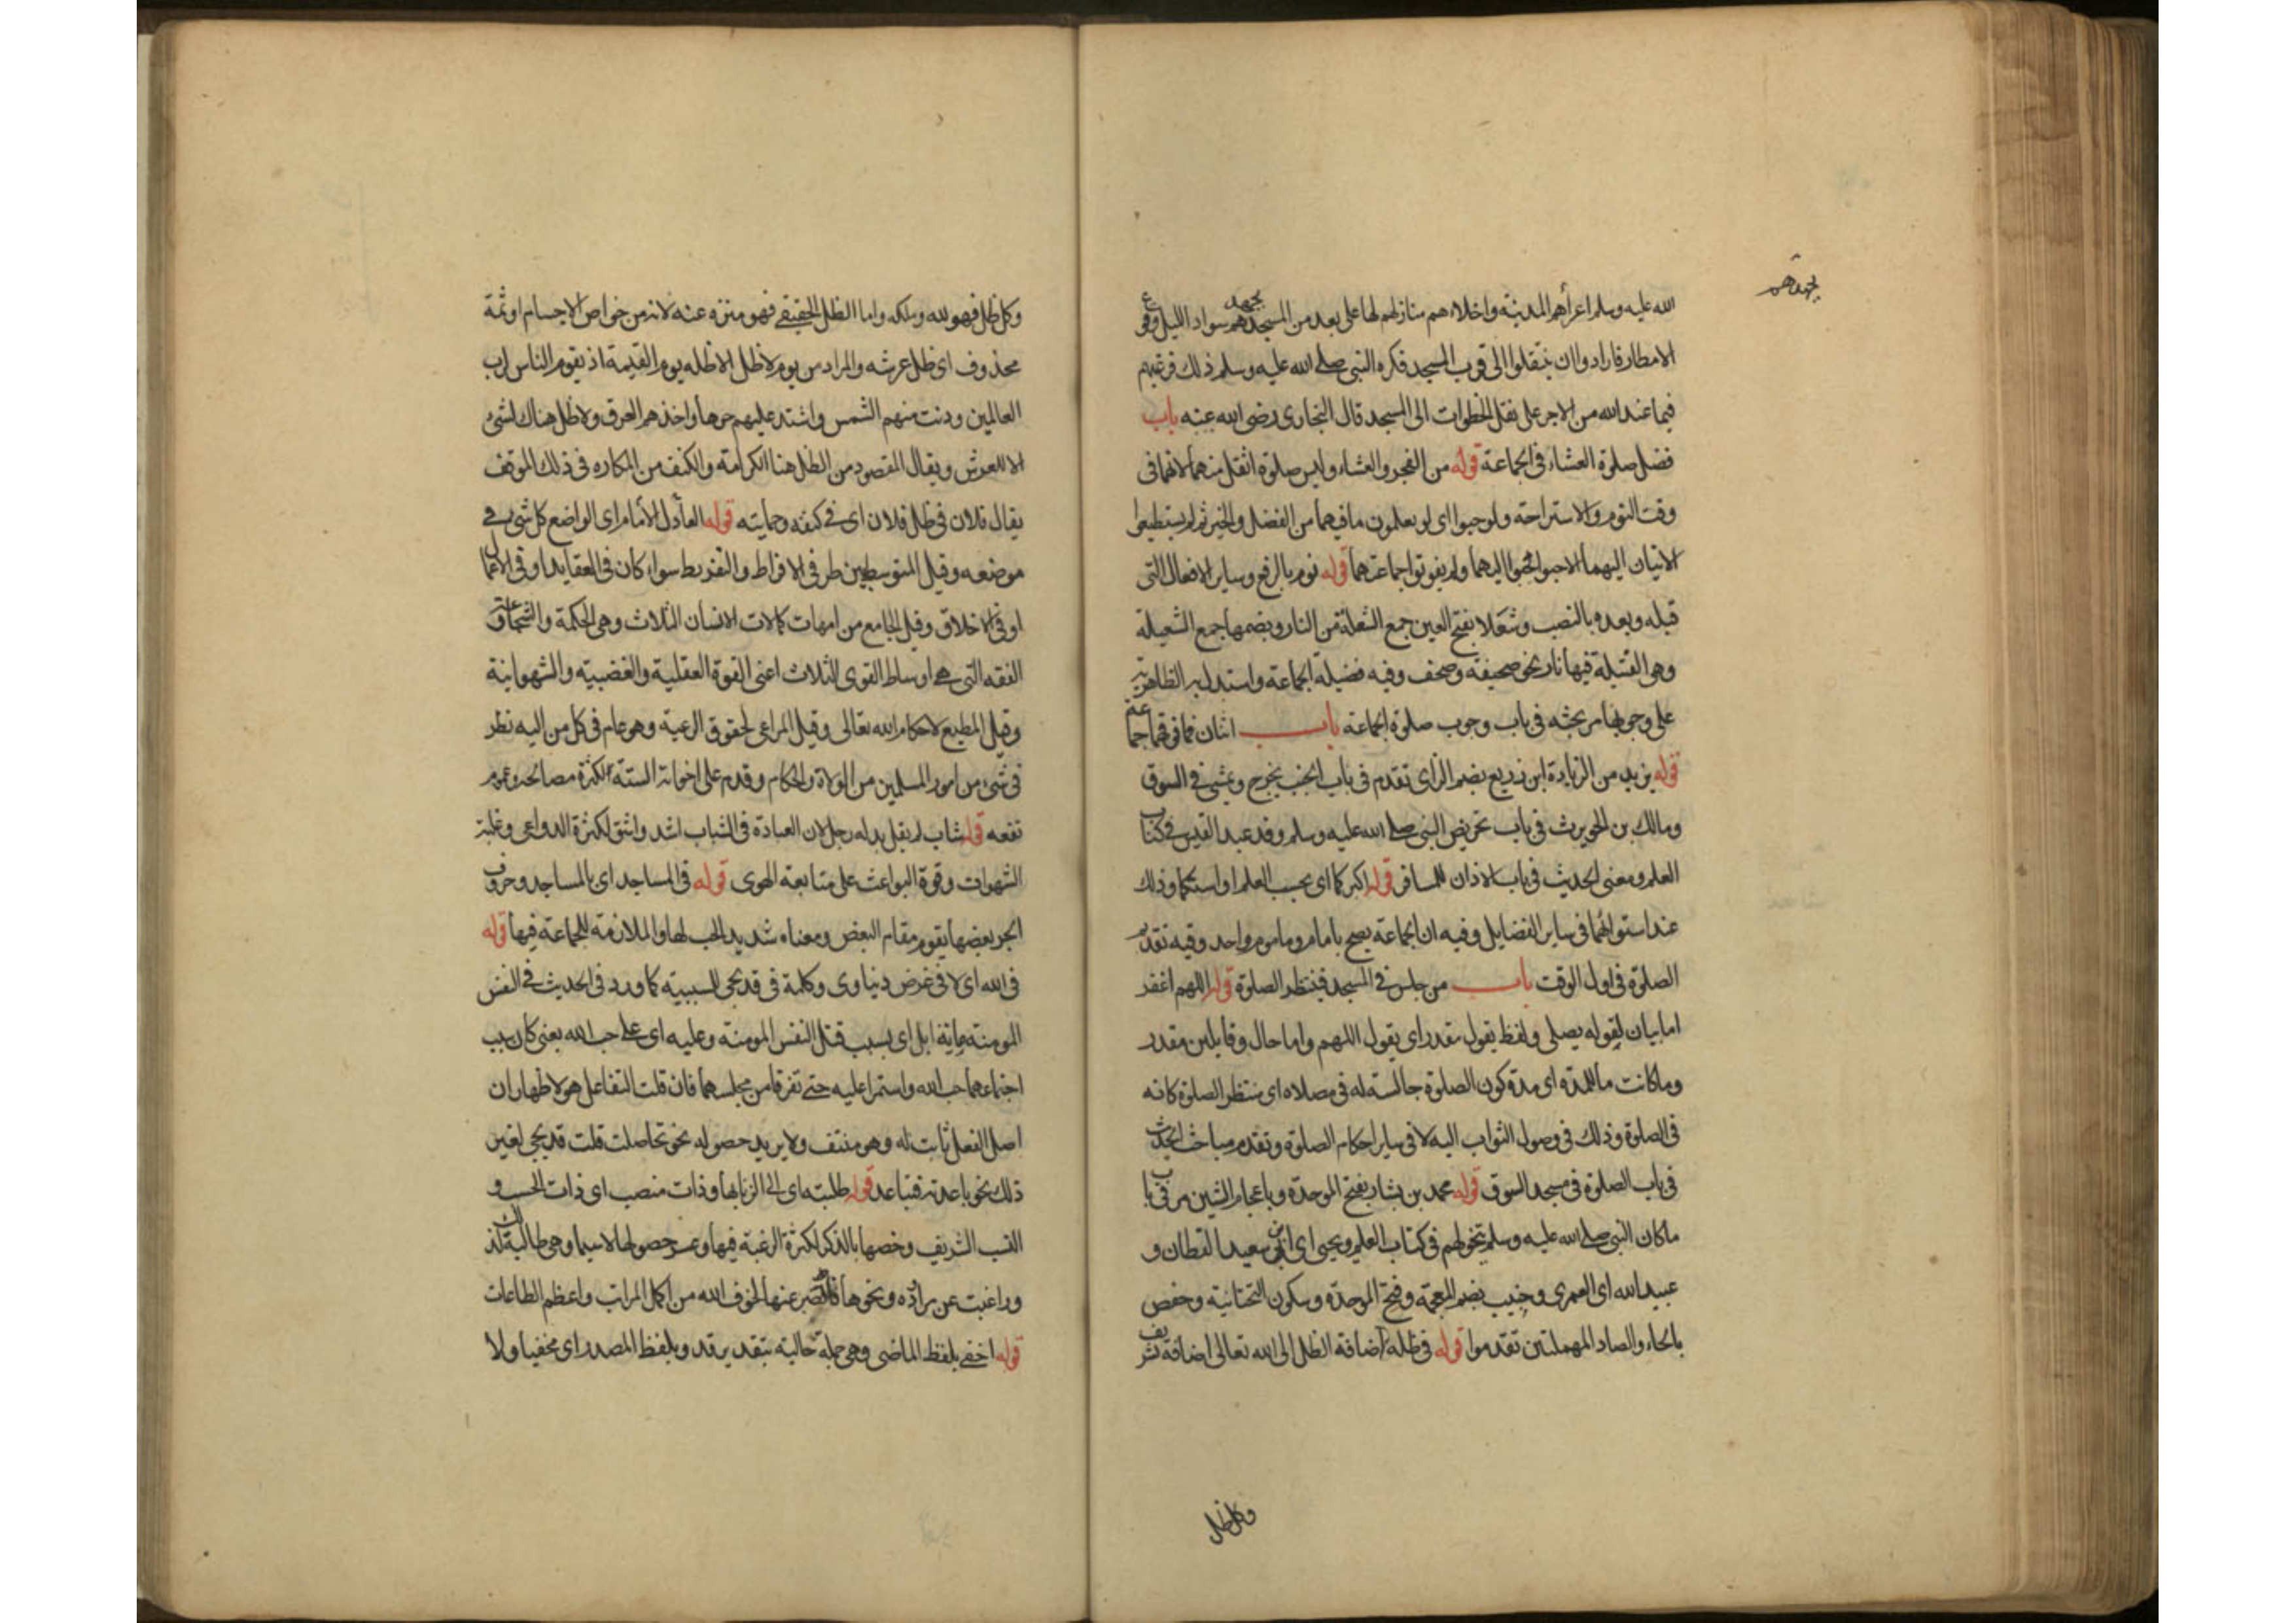 الله عليه وسلم اعرأهم المدينة واخلاءهم منازلهم لها على بعد من المسجد يجهدهم سواد الليل وقوع
يجهدهم
الامطار فارادوا ان ينتقلوا الى قرب المسجد فكره النبي صلى الله عليه وسلم ذلك فرغبهم
فيما عند الله من الاجر على نقل الخطوات الى المسجد قال البخارى رضى الله عنه باب
فضل صلوة العشاء فى الجماعة قوله من الفجر والعشاء وليس صلوة اثقل منهما لانهما فى
وقت النوم والاستراحة ولو حبوا اى لو يعلمون ما فيهما من الفضل والخير ثم لم يستطيعوا
الاتيان اليهما الا حبوا لحبوا اليهما ولم يفوتوا جماعتهما قوله نوم بالرفع وساير الافعال التى
قبله وبعده بالنصب وشعلا بفتح العين جمع الشعلة من النار وبضمها جمع الشعيلة
وهى الفتيلة فيها نار نحو صحيفة وصحف وفيه فضيلة الجماعة واستدل به الظاهرية
على وجوبها مر بحثه فى باب وجوب صلوة الجماعة باب اثنان فما فوقهما جماعة
قوله يزيد من الزيادة ابن زريع بضم الزاى تقدم فى باب الجنب يخرج ويمشى فى السوق
ومالك بن الحويرث فى باب تحريض النبى صلى الله عليه وسلم وفد عبد القيس فى كتاب
العلم ومعنى الحديث فى باب الاذان للمسافر قوله اكبركما اى بحسب العلم او اسنكما وذلك
عند استوائهما فى ساير الفضايل وفيه ان الجماعة يصح بامام وماموم واحد وفيه تقديم
الصلوة فى اول الوقت باب من جلس فى المسجد فينتظر الصلوة قوله اللهم اغفر
اما بيان لقوله يصلى ولفظ يقول مقدر اى يقول اللهم واما حال وقايلين مقدر
وما كانت ما للمدة اى مدة كون الصلوة جالسة له فى مصلاه اى منتظر الصلوة كانه
فى الصلوة وذلك فى وصول الثواب اليه لا فى ساير احكام الصلوة وتقدم مباحث الحديث
فى باب الصلوة فى مسجد السوق قوله محمد بن بشار بفتح الموحدة وباعجام الشين مر فى باب
ما كان النبى صلى الله عليه وسلم يتخولهم فى كتاب العلم ويحيى اى ابن سعيد القطان و
عبيد الله اى العمرى وخبيب بضم المعجمة وفتح الموحدة وسكون التحتانية وحفص
بالحاء والصاد المهملتين تقدموا قوله فى ظله اضافة الظل الى الله تعالى اضافة تشريف
وكل ظل
وكل ظل فهو لله وملكه واما الظل الحقيقى فهو منزه عنه لانه من خواص الاجسام او ثمة
محذوف اى ظل عرشه والمراد من يوم لا ظل الا ظله يوم القيمة اذ يقوم الناس لرب
العالمين ودنت منهم الشمس واشتد عليهم حرها واخذهم العرق ولا ظل هناك لشئ
الا للعرش ويقال المقصود من الظل هنا الكرامة والكنف من المكاره فى ذلك الموقف
يقال فلان فى ظل فلان اى فى كنفه وحمايته قوله العادل الامام اى الواضع كل شئ فى
موضعه وقيل المتوسط بين طرفى الافراط والتفريط سواء كان فى العقايد او فى الاعمال
او فى الاخلاق وقيل الجامع من امهات كمالات الانسان الثلاث وهى الحكمة والشجاعة و
الفقه التى هى اوساط القوى الثلاث اعنى القوة العقلية والغضبية والشهوانية
وقيل المطيع لاحكام الله تعالى وقيل المراعى لحقوق الرعية وهو عام فى كل من اليه نظر
فى شئ من امور المسلمين من الولاة والحكام وقدم على اخواته الستة لكثرة مصالحه وعموم
نفعه قوله شاب لم يقل بدله رجل لان العبادة فى الشباب اشد واشق لكثرة الدواعى وغلبة
الشهوات وقوة البواعث على متابعة الهوى قوله فى المساجد اى بالمساجد وحروف
الجر بعضها يقوم مقام البعض ومعناه شديد الحب لها والملازمة للجماعة فيها قوله
فى الله اى لا فى غرض دنياوى وكلمة فى قد يجئ للسببية كما ورد فى الحديث فى النفس
المومنة ماية ابل اى بسبب قتل النفس المومنة وعليه اى على حب الله يعنى كان سبب
اجتماعهما حب الله واستمرا عليه حتى تفرقا من مجلسهما فان قلت التفاعل هو لاظهار ان
اصل الفعل ثابت له وهو منتف ولا يريد حصوله نحو تجاهلت قلت قد يجئ لغير
ذلك نحو باعدته فتباعد قوله طلبته اى الى الزنا بها وذات منصب اى ذات الحسب و
النسب الشريف وخصها بالذكر لكثرة الرغبة فيها وعسر حصولها لا سيما وهى طالبة لذلك
وراغبت عن مراوده ونحوها فالصبر عنها لخوف الله من اكمل المراتب واعظم الطاعات
قوله اخفى بلفظ الماضى وهى جملة حالية بتقدير قد وبلفظ المصدر اى مخفيا ولا